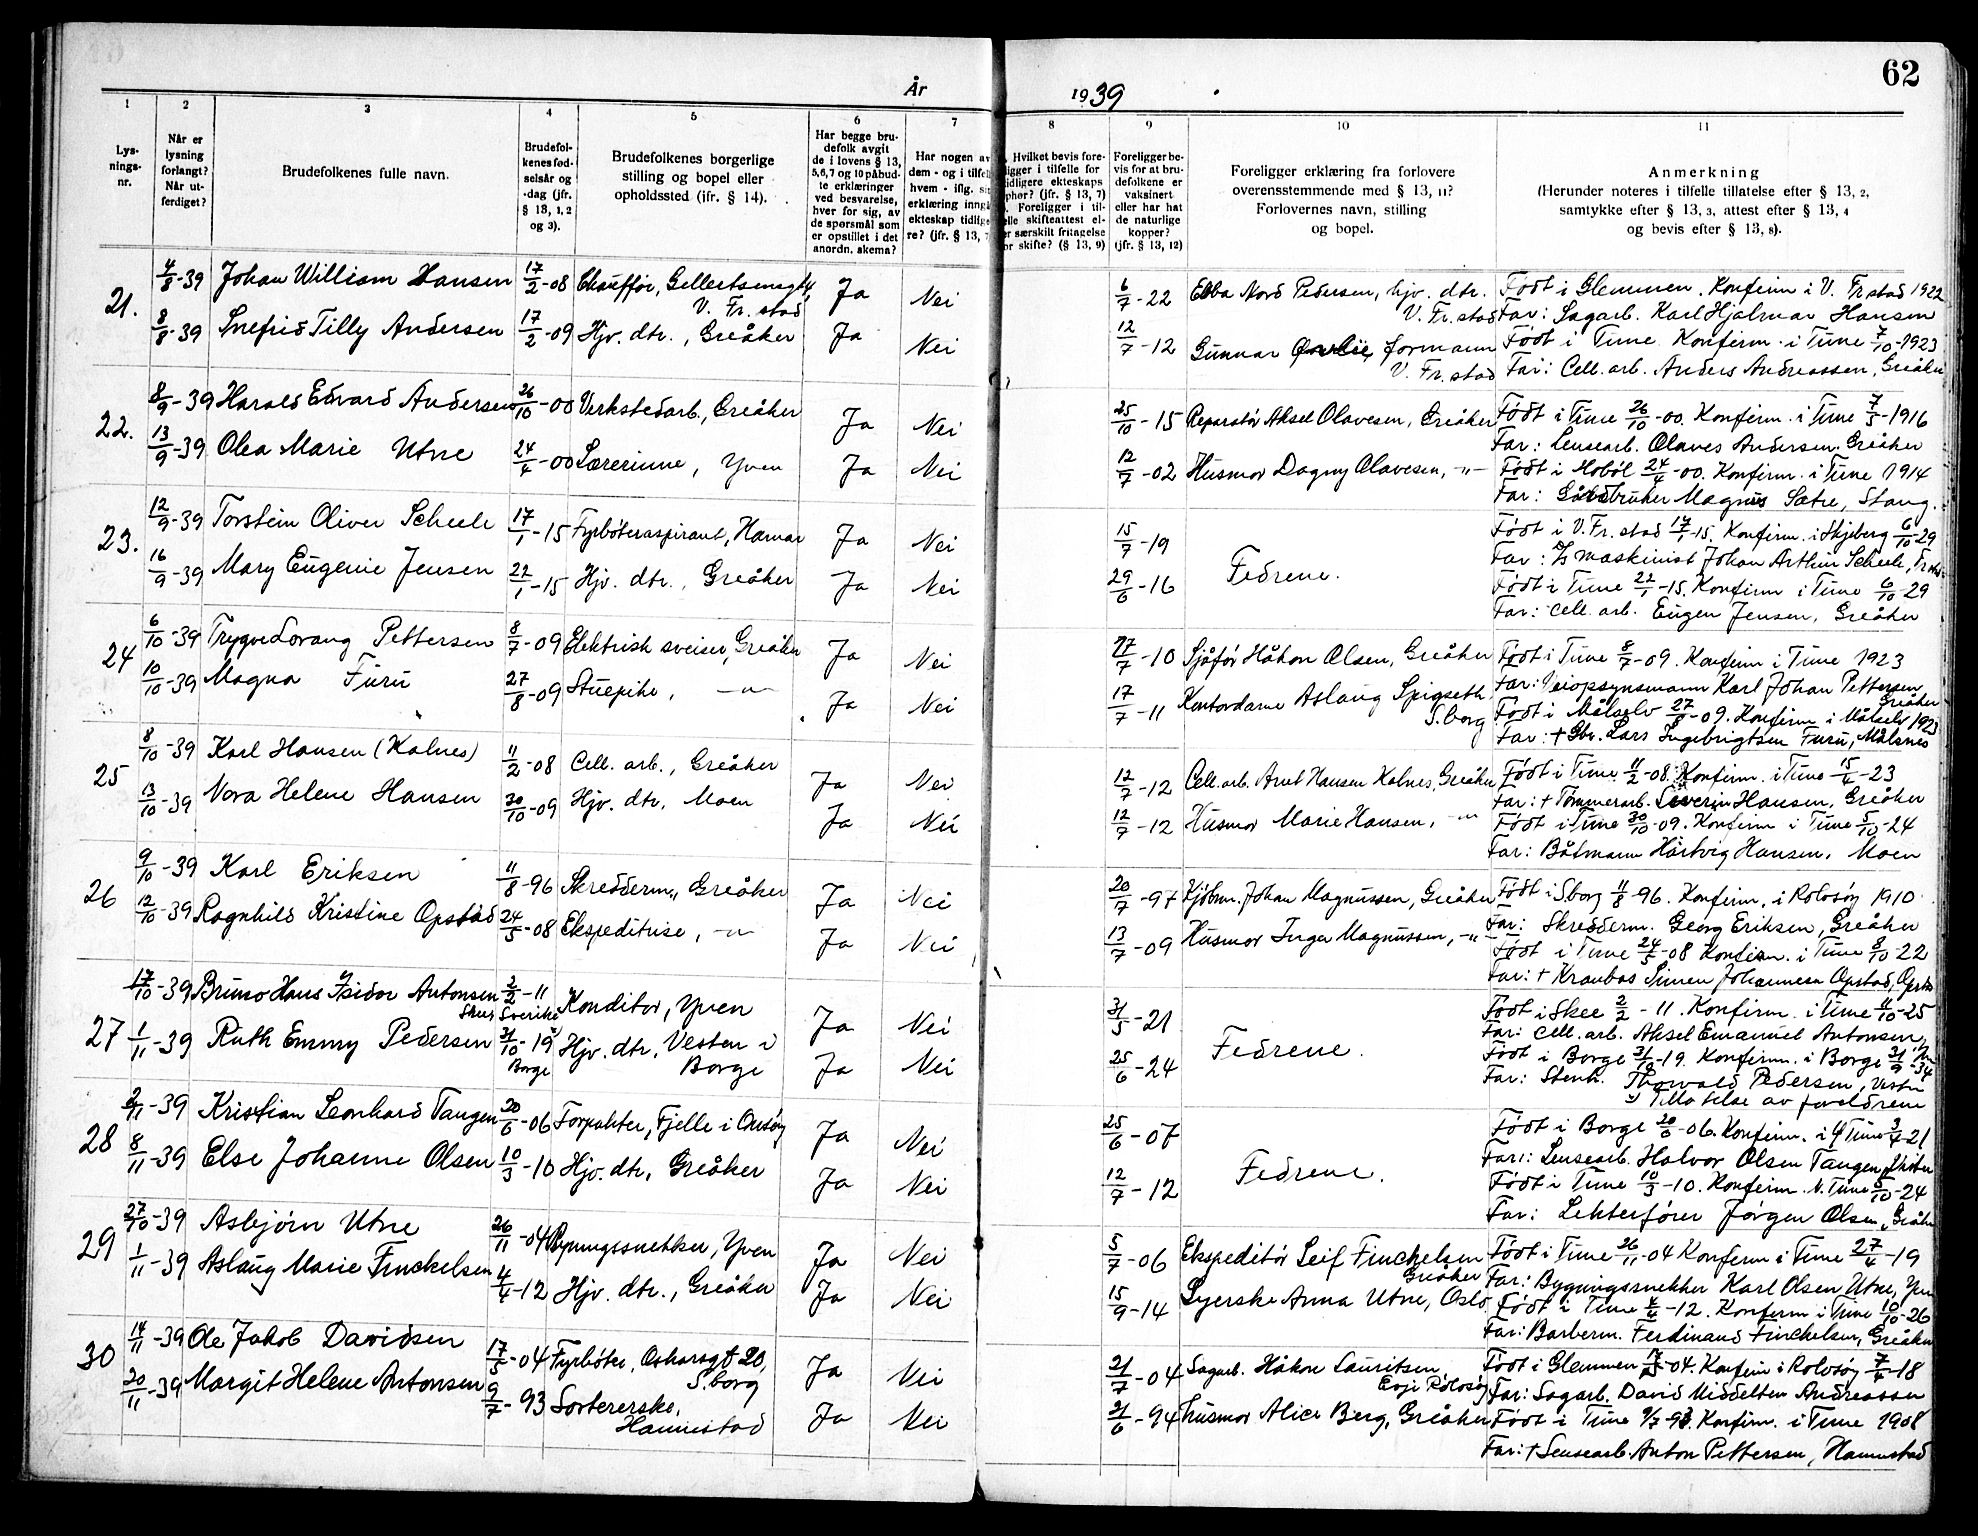 År 1939
62
1 2 3 4 5 6 7 8 9 10 11
Lys-
nings-
nr.
Når er
lysning
forlangt?
Når ut-
ferdiget?
Brudefolkenes fulle navn.
Brudefol-
kenes fød-
selsår og
-dag (jfr.
§ 13, 1, 2
og 3).
Brudefolkenes borgerlige
stilling og bopel eller
opholdssted (ifr. § 14).
Har begge bru-
defolk avgit
de i lovens § 13,
5,6,7 og 10 påbud-
te erklæringer
ved besvarelse,
hver for sig, av
de spørsmål som
er opstillet i det
anordn. skema?
Har nogen av
dem - og i tilfelle
hvem - iflg.
erklæring inngå
ekteskap tidlige-
re? (jfr. § 13, 7
Hvilket bevis fore-
ligger i tilfelle for
tidligere ekteskaps
ophør? (jfr. § 13, 7)
Foreligger i til-
felle skifteattest el-
er særskilt fritagelse
for skifte? (§ 13, 9)
Foreligger be-
vis for at bru-
defolkene er
vaksinert
eller har hat
de naturlige
kopper?
(jfr. § 13, 12)
Foreligger erklæring fra forlovere
overensstemmende med § 13, 11?
Forlovernes navn, stilling
og bopel.
Anmerkning
(Herunder noteres i tilfelle tillatelse efter § 13, 2,
samtykke efter § 13, 3, attest efter § 13, 4
og bevis efter § 13, 8).
21. 4/8-39 Johan William Hansen 17/2-08 Chauffør, Gellertsensgt 4, V. Fr.stad Ja Nei 6/7-22 Ebba Nord Pedersen, hjv. dtr. V. Fr.stad Født i Glemmen. Konfirm i V. Fr.stad 1922
Far: Sagarb. Karl Hjalmar Hansen
8/8-39 Snefrid Tilly Andersen 17/2-09 Hjv. dtr., Greåker Ja Nei 12/7-12 Gunnar formann V. Fr.stad Født i Tune. Konfirm. i Tune 7/10-1923
Far: Cell. arb. Anders Andreassen, Greåker
22. 8/9-39 Harald Edvard Andersen 26/10-00 Verkstedarb., Greåker Ja Nei 25/10-15 Reparatør Aksel Olavesen, Greåker Født i Tune 26/10-00. Konfirm. i Tune 7/5-1916
Far: Lensearb. Olaves Andersen. Greåker
13/9-39 Olea Marie Utne 24/4-00 Lærerinne, Yven Ja Nei 12/7-02 Husmor Dagny Olavesen, -"- Født i Hobøl 24/4-00. Konfirm. i Tune 1914
Far: Gårdbruker Magnus Sætre, Stang.
23. 12/9-39 Torstein Oliver Scheele 17/1-15 Fyrbøteraspirant, Hamar Ja Nei 15/7-19 Fedrene. Født i V. Fr.stad 17/1-15. Konfirm. i Skjeberg 6/10-29
Far: maskinist Johan Arthur Scheele,
16/9-39 Mary Eugenie Jensen 22/1-15 Hjv. dtr., Greåker Ja Nei 29/6-16 Født i Tune 22/1-15. Konfirm i Tune 6/10-29
Far: cell. arb. Eugen Jensen, Greåker
24 6/10-39 Trygve Lorang Pettersen 8/7-09 Elektrisk sveiser, Greåker Ja Nei 27/7-10 Sjåfør Håkon Olsen, Greåker Født i Tune 8/7-09. Konfirm i Tune 1923
Far: Veiopsynsmann Karl Johan Pettersen Greåker
10/10-39 Magna Furu 27/8-09 Stuepike, -"- Ja Nei 17/7-11 Kontordame Aslaug Spigseth S.borg Født i Målselv 27/8-09. Konfirm i Målselv 1923
Far: + Gbr. Lars Ingebrigtsen Furu, Målsnes
25 8/10-39 Karl Hansen (Kalnes) 11/2-08 Cell. arb., Greåker Ja Nei 12/7-12 Cell. arb. Arnt Hansen Kalnes, Greåker Født i Tune 11/2-08. Konfirm. i Tune 15/4-23
Far: + Tømmerarb. Severin Hansen, Greåker
13/10-39 Nora Helene Hansen 30/10-09 Hjv. dtr, Moen Ja Nei 12/7-12 Husmor Marie Hansen, -"- Født i Tune 30/10-09. Konfirm i Tune 5/10-24
Far: Båtmann Hartvig Hansen, Moen
26 9/10-39 Karl Eriksen 11/8-96 Skredderm., Greåker Ja Nei 20/7-97 Kjøbm. Johan Magnussen, Greåker Født i S.borg 11/8-96. Konfirm. i Rolvsøy 1910
Far: Skredderm. Georg Eriksen, Greåker
12/10-39 Ragnhild Kristine Opstad 24/5-08 Ekspeditrise, -"- Ja Nei 13/7-09 Husmor Inga Magnussen, -"- Født i Tune 24/5-08 Konfirm. i Tune 8/10-22
Far: + Kranbas Simen Johannesen Opstad, Opstad
27 17/10-39 Bruno Hans Isidor Antonsen 2/2-11 Skee Sverike Konditor, Yven Ja Nei 31/5-21 Fedrene. Født i Skee 2/2-11. Konfirm. i Tune 11/10-25
Far: Cell. arb. Aksel Emanuel Antonsen,
1/11-39 Ruth Emmy Pedersen 31/10-19 Borge Hjv. dtr, Vesten i Borge Ja Nei 25/6-24 Født i Borge 31/10-19. Konfirm. i Borge
Far: Stenh. Thorvald Pedersen, Vesten
Tillatelse av foreldrene
28 2/11-39 Kristian Leonhard Tangen 20/6-06 Forpakter, Fjelle i Onsøy Ja Nei 25/6-07 Fedrene. Født i Borge 20/6-06. Konfirm. i Tune 3/4-21
Far: Lensearb. Halvor Olsen Tangen,
8/11-39 Else Johanne Olsen 10/3-10 Hjv. dtr, Greåker Ja Nei 12/7-12 Født i Tune 10/3-10. Konfirm. N. Tune 5/10-24
Far: Lekterfører Jørgen Olsen, Greåker
29 27/10-39 Asbjørn Utne 26/11-04 Bygningssnekker, Yven Ja Nei 5/7-06 Ekspeditør Leif Finckelsen Greåker Født i Tune 26/11-04 Konfirm i Tune 27/4-19
Far: Bygningssnekker Karl Olsen Utne, Yven
1/11-39 Aslaug Marie Finckelsen 4/4-12 Hjv. dtr., Greåker Ja Nei 15/9-14 Syerske Anna Utne, Oslo Født i Tune 4/4-12. Konfirm i Tune 10/10-26
Far: Barberm. Ferdinand Finckelsen, Greåker
30 14/11-39 Ole Jakob Davidsen 17/5-04 Fyrbøter, Oskarsgt 20, S.borg Ja Nei 21/7-04 Sagarb. Håkon Lauritsen Evje Rolvsøy Født i Glemmen 17/5-04. Konfirm i Rolvsøy 7/4-18
Far: Sagarb. David Middelten Andreassen
20/11-39 Margit Helene Antonsen 9/7-93 Sortererske, Hannestad Ja Nei 21/6-94 Husmor Alice Berg, Greåker Født i Tune 9/7-93. Konfirm. i Tune 1908
Far: + Lensearb. Anton Pettersen, Hannestad